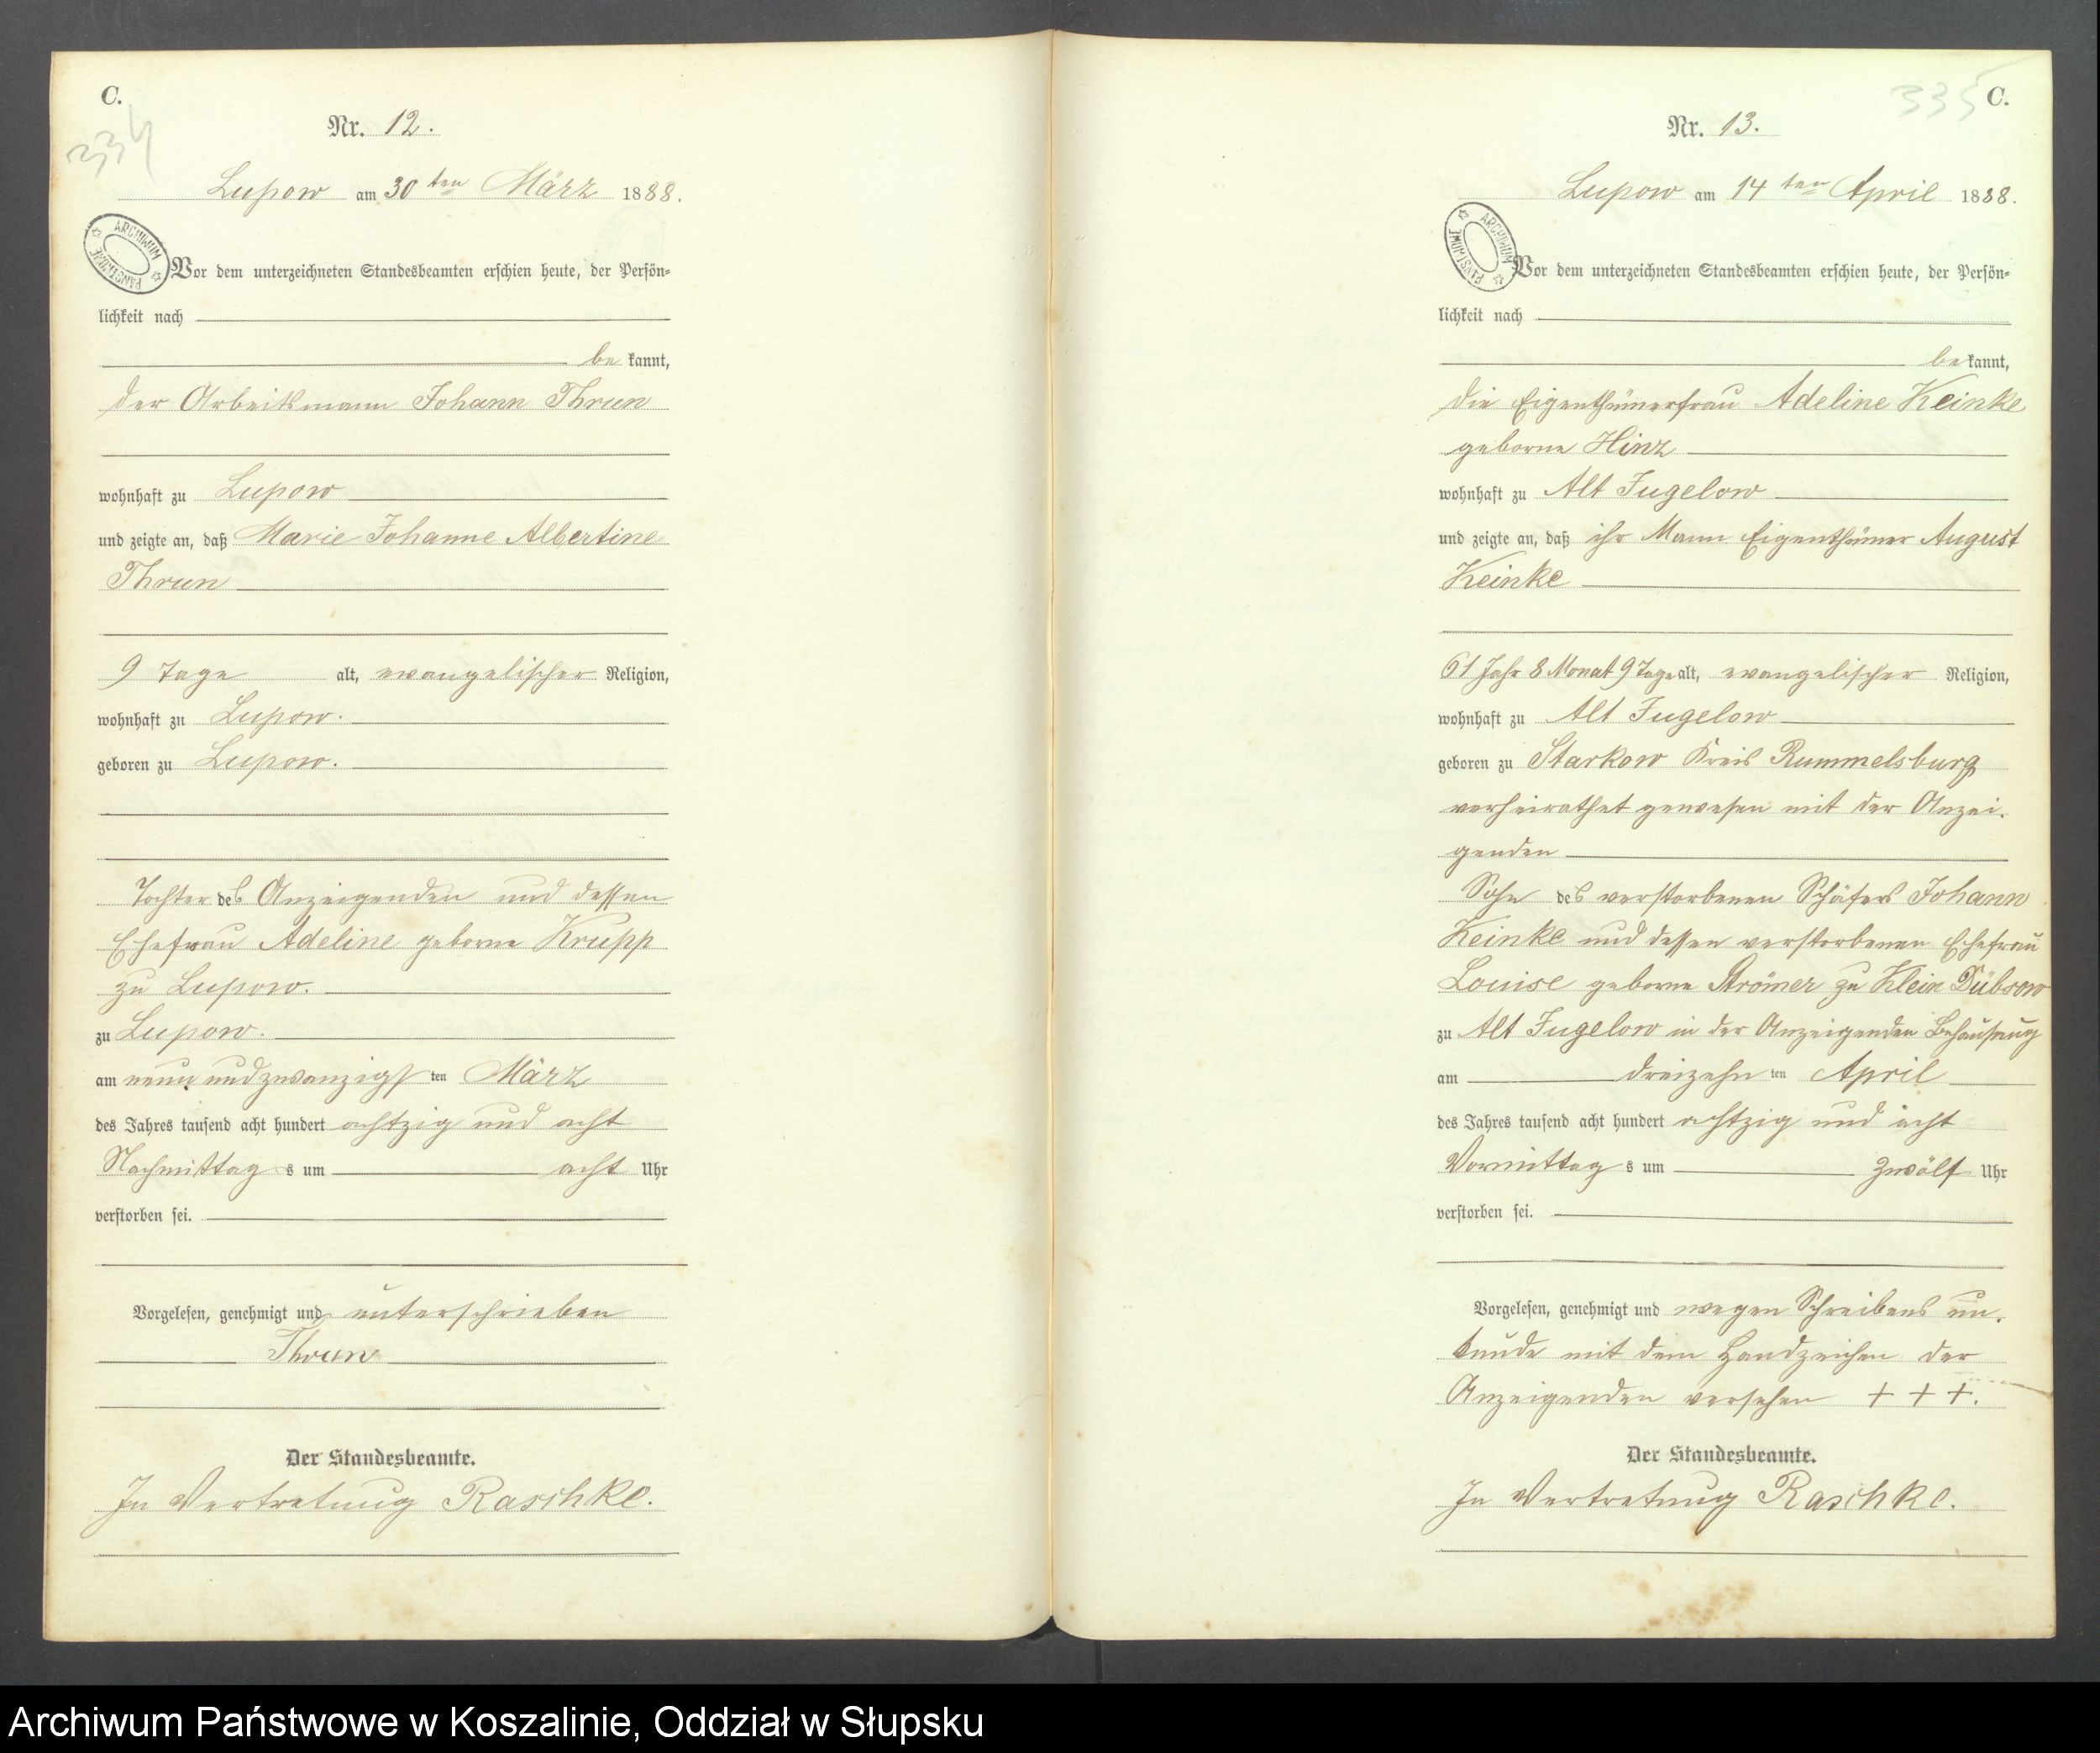 C.
334
Nr. 12.
Lupow am 30 ten März 1888.
ARCHIWUM PAŃSTWOWE
Vor dem unterzeichneten Standesbeamten erschien heute, der Persön-
lichkeit nach
be kannt,
der Arbeitsmann Johann Thrun
wohnhaft zu Lupow
und zeigte an, daß Marie Johanne Albertine
Thrun
9 Tage alt, evangelischer Religion,
wohnhaft zu Lupow.
geboren zu Lupow.
Tochter des Anzeigenden und dessen
Ehefrau Adeline geborne Krupp
zu Lupow.
zu Lupow.
am neun und zwanzigsten März
des Jahres tausend acht hundert achtzig und acht
Nachmittag s um acht Uhr
verstorben sei.
Vorgelesen, genehmigt und unterschrieben
Thrun
Der Standesbeamte.
In Vertretung Raschke.
335 C.
Nr. 13.
Lupow am 14 ten April 1888.
ARCHIWUM PAŃSTWOWE
Vor dem unterzeichneten Standesbeamten erschien heute, der Persön-
lichkeit nach
be kannt,
die Eigenthümerfrau Adeline Keinke
geborne Hinz
wohnhaft zu Alt Jugelow
und zeigte an, daß ihr Mann Eigenthümer August
Keinke
61 Jahr 8 Monat 9 Tage alt, evangelischer Religion,
wohnhaft zu Alt Jugelow
geboren zu Starkow Kreis Rummelsburg
verheirathet gewesen mit der Anzei-
genden
Sohn des verstorbenen Schäfers Johann
Keinke und dessen verstorbenen Ehefrau
Louise geborne Strömer zu Klein Dübsow
zu Alt Jugelow in der Anzeigenden Behausung
am dreizehn ten April
des Jahres tausend acht hundert achtzig und acht
Vormittag s um zwölf Uhr
verstorben sei.
Vorgelesen, genehmigt und wegen Schreibens un-
kunde mit dem Handzeichen der
Anzeigenden versehen + + +.
Der Standesbeamte.
In Vertretung Raschke.
Archiwum Państwowe w Koszalinie, Oddział w Słupsku